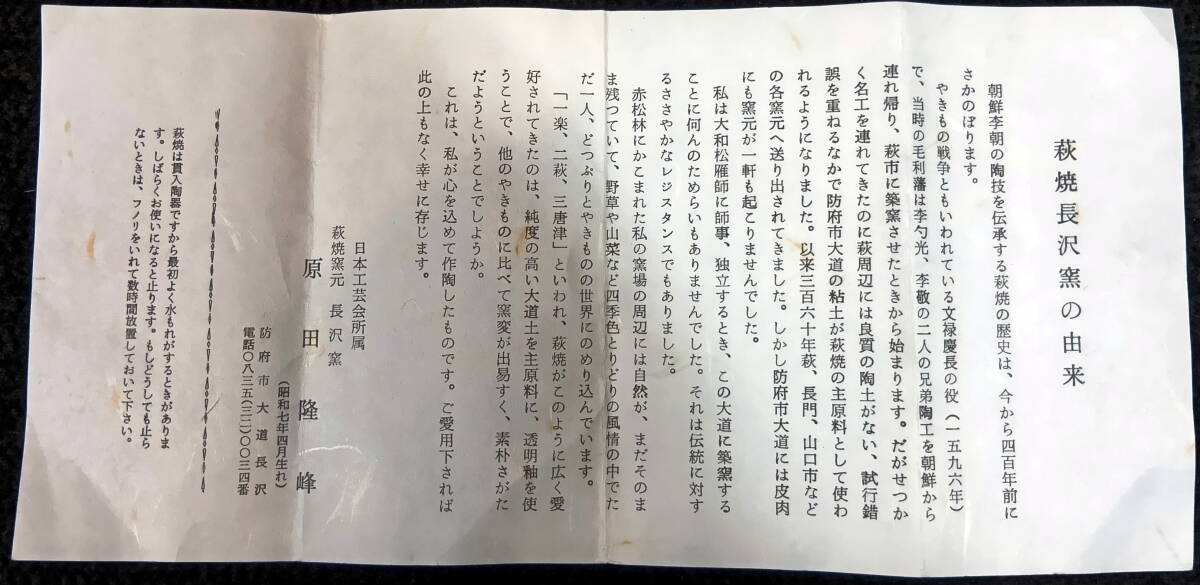 萩焼長沢窯の由来
朝鮮李朝の陶技を伝承する萩焼の歴史は、今から四百年前に
さかのぼります。
やきもの戦争ともいわれている文禄慶長の役(一五九六年)
で、当時の毛利藩は李勺光、李敬の二人の兄弟陶工を朝鮮から
連れ帰り、萩市に築窯させたときから始まります。だがせつか
く名工を連れてきたのに萩周辺には良質の陶土がない、試行錯
誤を重ねるなかで防府市大道の粘土が萩焼の主原料として使わ
れるようになりました。以来三百六十年萩、長門、山口市など
の各窯元へ送り出されてきました。しかし防府市大道には皮肉
にも窯元が一軒も起こりませんでした。
私は大和松雁師に師事、独立するとき、この大道に築窯する
ことに何んのためらいもありませんでした。それは伝統に対す
るささやかなレジスタンスでもありました。
赤松林にかこまれた私の窯場の周辺には自然が、まだそのま
ま残つていて、野草や山菜など四季色とりどりの風情の中でた
だ一人、どつぷりとやきものの世界にのめり込んでいます。
「一楽、二萩、三唐津」といわれ、萩焼がこのように広く愛
好されてきたのは、純度の高い大道土を主原料に、透明釉を使
うことで、他のやきものに比べて窯変が出易すく、素朴さがた
だようということでしようか。
これは、私が心を込めて作陶したものです。ご愛用下されば
此の上もなく幸せに存じます。
日本工芸会所属
萩焼窯元 長沢窯
原田隆峰
(昭和七年四月生れ)
防府市大道長沢
電話〇八三五(三二)〇〇三四番
萩焼は貫入陶器ですから最初よく水もれがするときがありま
す。しばらくお使いになると止ります。もしどうしても止ら
ないときは、フノリをいれて数時間放置しておいて下さい。